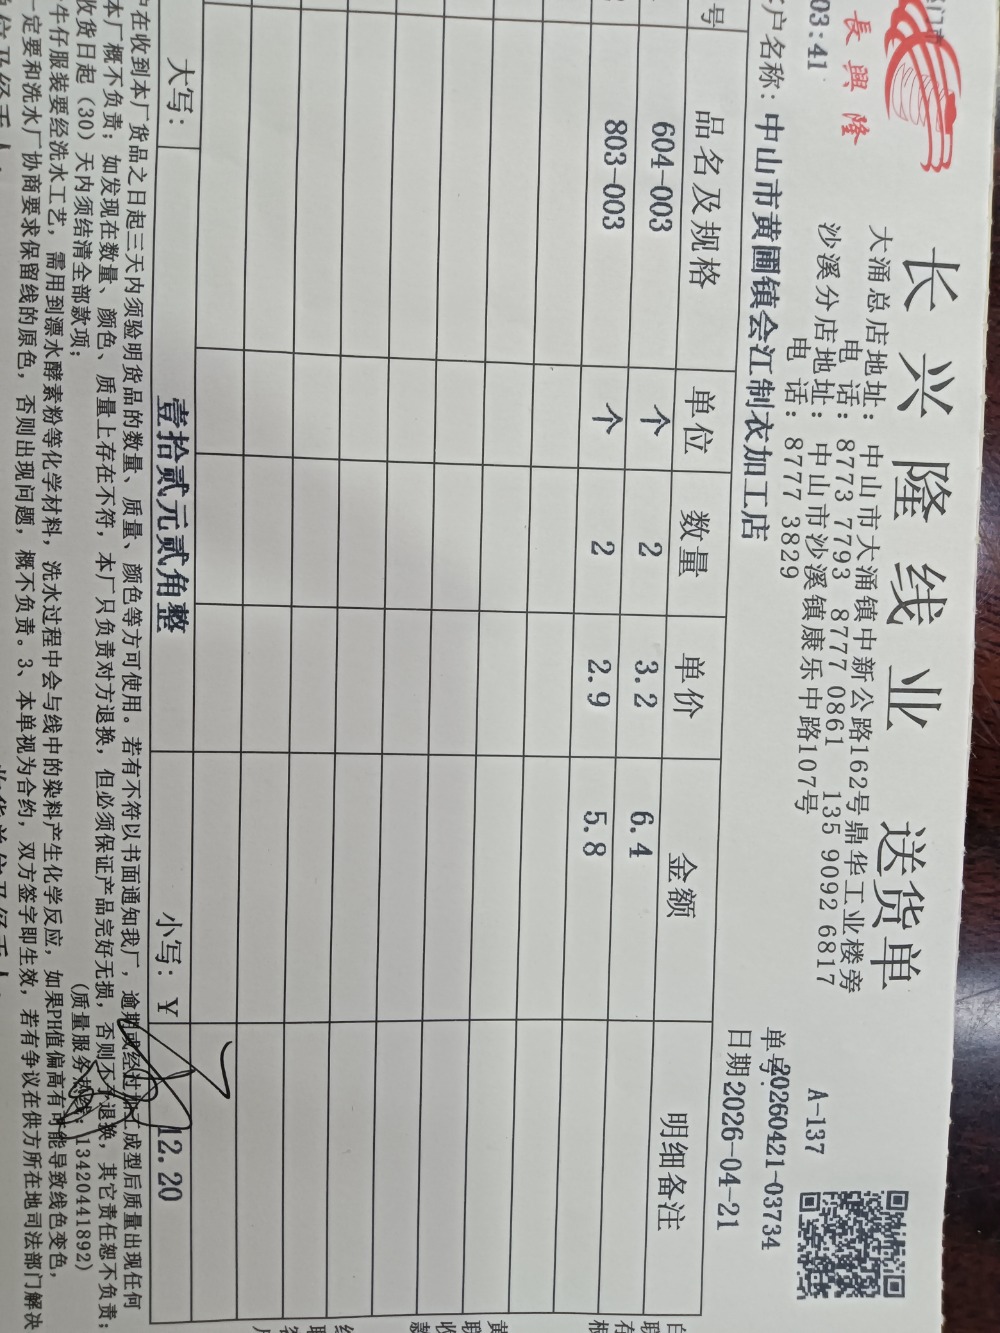 長興隆
长兴隆线业 送货单
大涌总店地址: 中山市大涌镇中新公路162号鼎华工业楼旁
电 话: 8773 7793 8777 0861 135 9092 6817
沙溪分店地址: 中山市沙溪镇康乐中路107号
电 话: 8777 3829
A-137
03:41
单号: 20260421-03734
户名称: 中山市黄圃镇会江制衣加工店
日期 2026-04-21
号 品名及规格 单位 数量 单价 金额 明细备注
604-003 个 2 3.2 6.4
803-003 个 2 2.9 5.8
大写: 壹拾贰元贰角整 小写: ¥ 12.20
户在收到本厂货品之日起三天内须验明货品的数量、质量、颜色等方可使用。若有不符以书面通知我厂, 逾期或经过加工成型后质量出现任何
本厂概不负责; 如发现在数量、颜色、质量上存在不符, 本厂只负责对方退换, 但必须保证产品完好无损, 否则不予退换, 其它责任恕不负责;
收货日起 (30) 天内须结清全部款项; (质量服务热线: 13420441892)
牛仔服装要经洗水工艺, 需用到漂水酵素粉等化学材料, 洗水过程中会与线中的染料产生化学反应, 如果PH值偏高有可能导致线色变色,
一定要和洗水厂协商要求保留线的原色, 否则出现问题, 概不负责。3、本单视为合约, 双方签字即生效, 若有争议在供方所在地司法部门解决